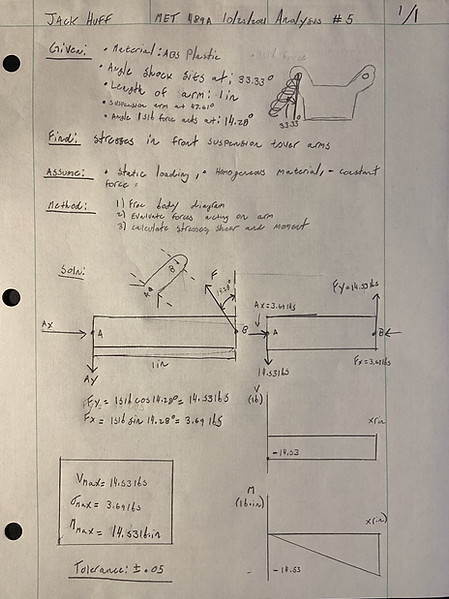 JACK HUFF MET 489A 10/21/2021 Analysis #5 1/1
Given: • Material: ABS Plastic
• Angle shock sits at: 33.33°
• Length of arm: 1in
• Suspension arm at 47.61°
• Angle 15lb force acts at: 14.28°
33.33°
Find: stresses in front suspension tower arms
Assume: • Static loading, • Homogenous material, - constant
force.
Method: 1) Free body diagram
2) Evaluate forces acting on arm
3) calculate stresses, shear and moment
Soln:
B
A
F
14.28°
Ax
A
B
Ay
1in
Ax=3.69lbs
Fy=14.53lbs
A
B
14.53lbs
Fx=3.69lbs
Fy = 15lb cos 14.28° = 14.53lbs
Fx = 15lb sin 14.28° = 3.69 lbs
V
(lb)
x(in
-14.53
Vmax= 14.53lbs
σmax = 3.69lbs
Mmax= 14.53lb·in
M
(lb·in)
x(in)
-14.53
Tolerance: ±.05